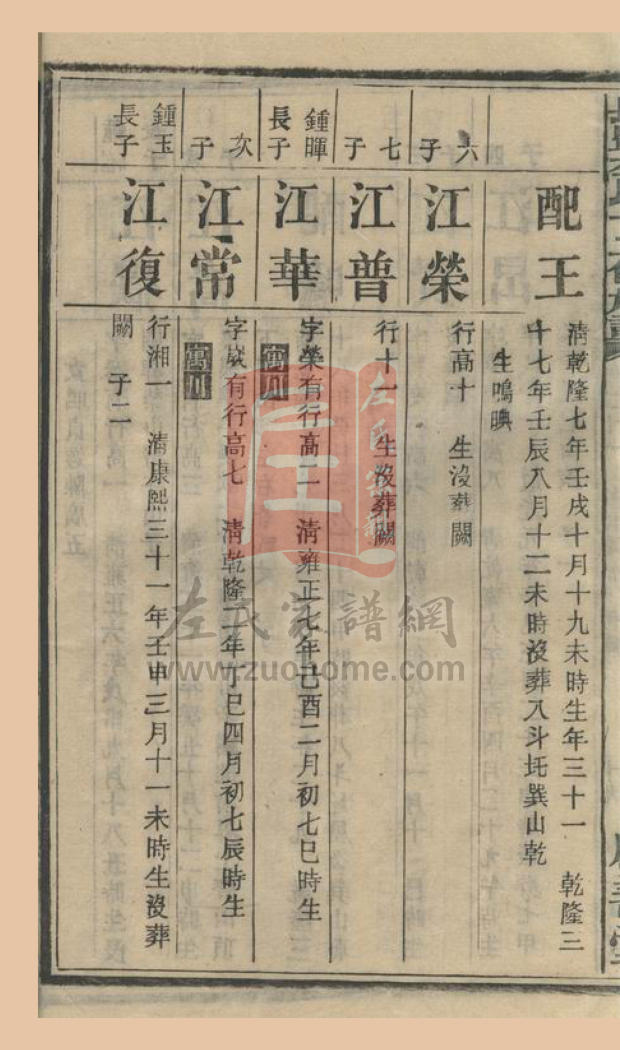 配王
清乾隆七年壬戌十月十九未時生年三十一 乾隆三
十七年壬辰八月十二未時沒葬入斗圫巽山乾
生鳴暎
六子
江榮
行高十 生沒葬闕
七子
江普
行十一 生沒葬闕
鍾暉
長子
江華
字榮有行高二 清雍正七年己酉二月初七巳時生
寓川
次子
江常
字崴有行高七 清乾隆二年丁巳四月初七辰時生
寓川
鍾玉
長子
江復
行湘一 清康熙三十一年壬申三月十一未時生沒葬
闕 子二
左氏家譜網
www.zuohome.com